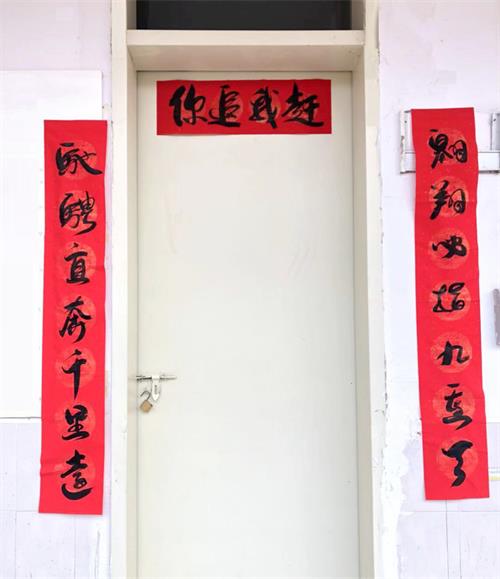 你追我赶
驰骋直奔千里远
翱翔必指九重天